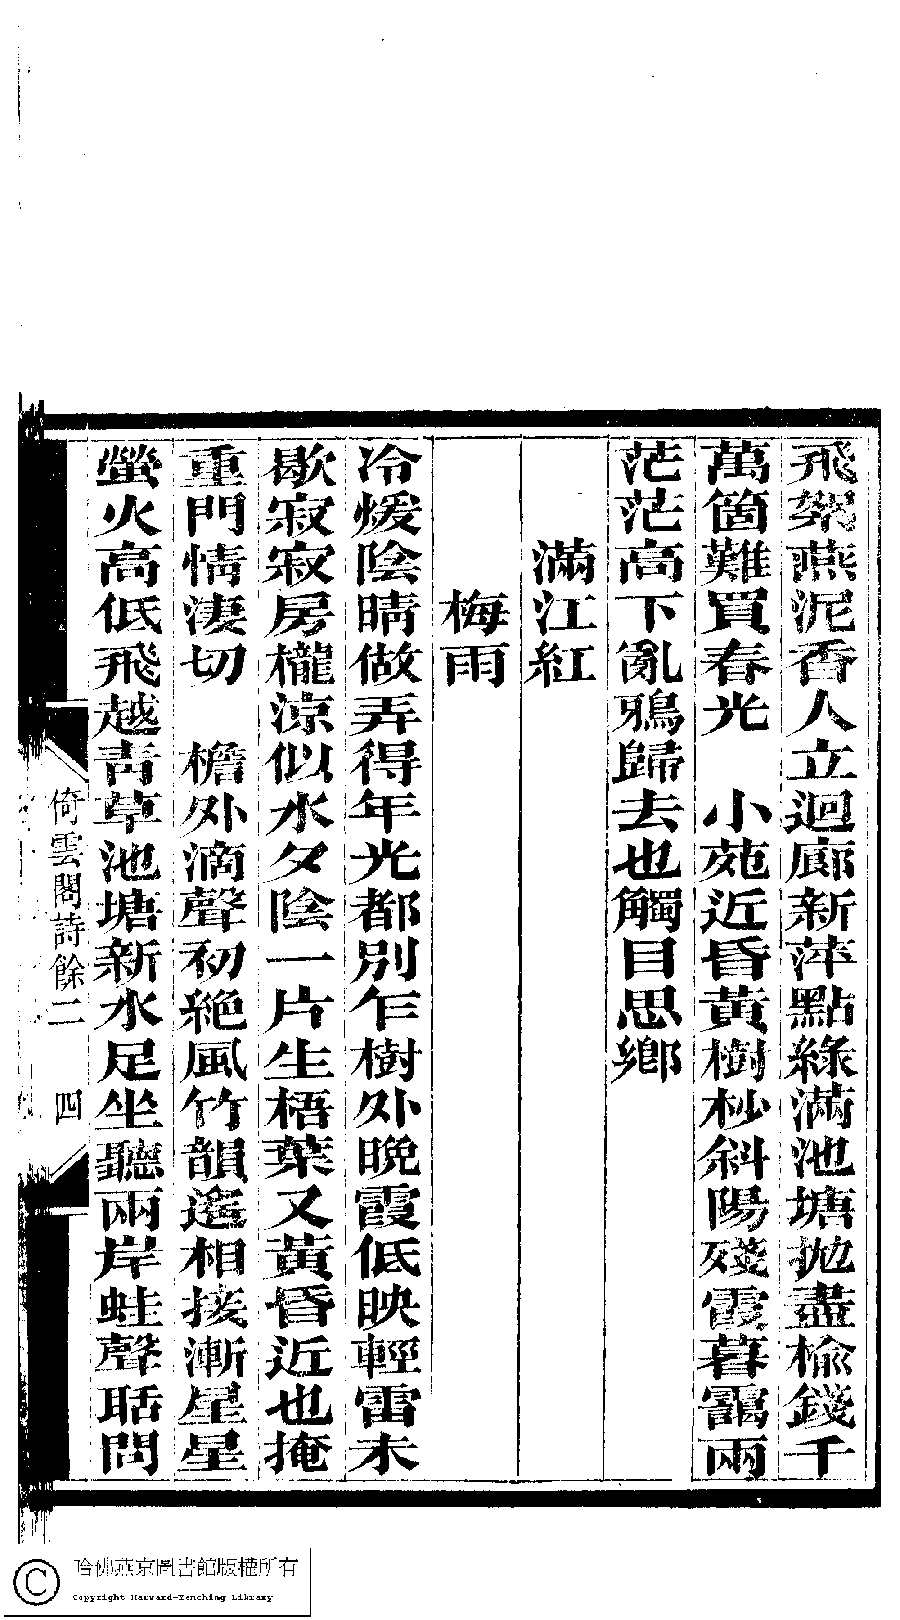 飛絮燕泥香人立迴廊新萍點綠滿池塘拋盡榆錢千
萬箇難買春光　小苑近昏黃樹杪斜陽殘霞暮靄兩
茫茫高下亂鴉歸去也觸目思鄉
滿江紅
梅雨
冷煖陰晴做弄得年光都別乍樹外晚霞低映輕雷未
歇寂寂房櫳涼似水夕陰一片生梧葉又黃昏近也掩
重門情淒切　檐外滴聲初絕風竹韻遙相接漸星星
螢火高低飛越靑草池塘新水足坐聽兩岸蛙聲聒問
倚雲閣詩餘二　四
哈佛燕京圖書館版權所有
Copyright Harvard-Yenching Library